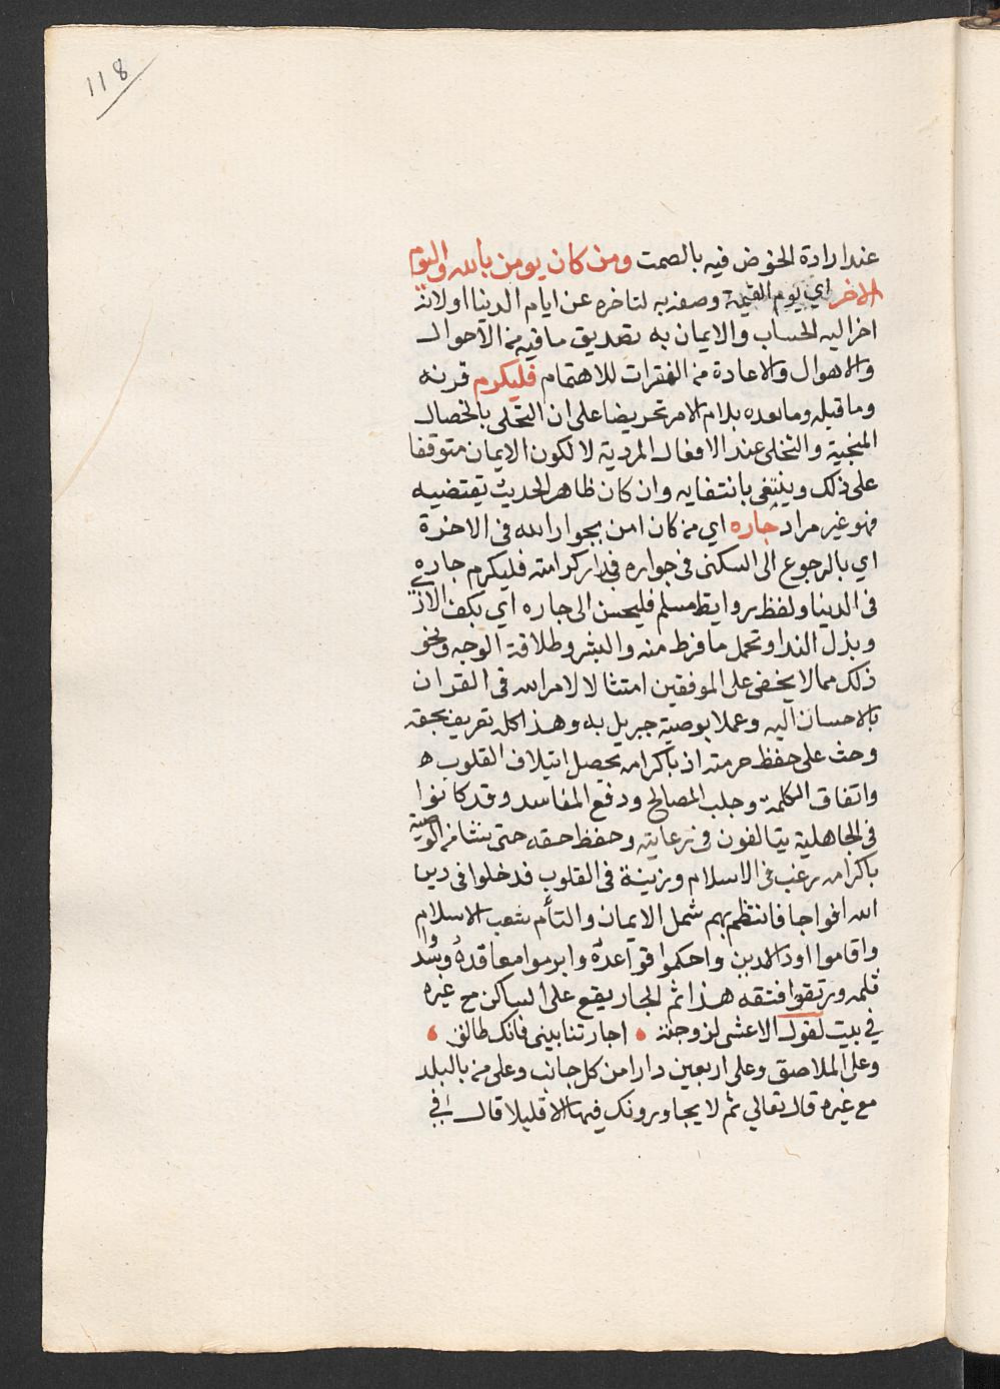 118
عند ارادة الخوض فيه بالصمت ومن كان يومن بالله واليوم
الاخر اي يوم القيمة وصفه به لتاخره عن ايام الدنيا او لانه
اخر اليه الحساب والايمان به تصديق ما فيه من الاحوال
والاهوال والاعادة من الفقرات للاهتمام فليكرم قرنه
وما قبله وما بعده بلام الامر تحريضا على ان التحلى بالخصال
المنجية والتخلى عند الافعال المردية لا لكون الايمان متوقفا
على ذلك وينتفى بانتفايه وان كان ظاهر الحديث يقتضيه
فهو غير مراد جاره اي من كان امن بجوار الله فى الاخرة
اي بالرجوع الى السكنى فى جواره فى دار كرامته فليكرم جاره
فى الدنيا ولفظ رواية مسلم فليحسن الى جاره اي بكف الاذى
وبذل الندا وتحمل ما فرط منه والبشر وطلاقة الوجه ونحو
ذلك مما لا يخفى على الموفقين امتثالا لامر الله فى القران
بالاحسان اليه وعملا بوصية جبريل به وهذا كله تعريف بحقه
وحث على حفظ حرمته اذ باكرامه تحصل ايتلاف القلوب ه
واتفاق الكلمة وجلب المصالح ودفع المفاسد وقد كانوا
فى الجاهلية يتالفون فى رعايته وحفظ حقه حتى الوصية
باكرامه رغب فى الاسلام وزينة فى القلوب فدخلوا فى دين
الله افواجا فانتظم بهم شمل الايمان والتأم شعب الاسلام
واقاموا اود الدين واحكموا قواعده وابرموا معاقده وسدوا
ثلمه ورتقوا فتقه هذا ثم الجار يقع على الساكن مع غيره
في بيت لقول الاعشى لزوجته • اجارتنا بينى فانك طالق •
وعلى الملاصق وعلى اربعين دارا من كل جانب وعلى من بالبلد
مع غيره قال تعالي ثم لا يجاورونك فيها الا قليلا قال في